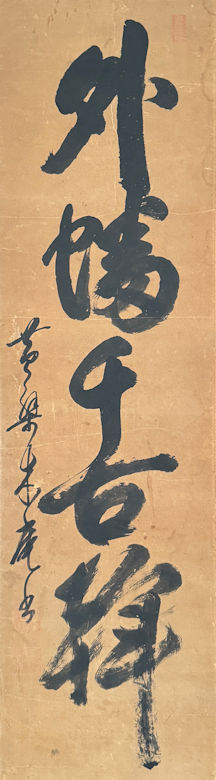 外幡千古
黄檗木庵書